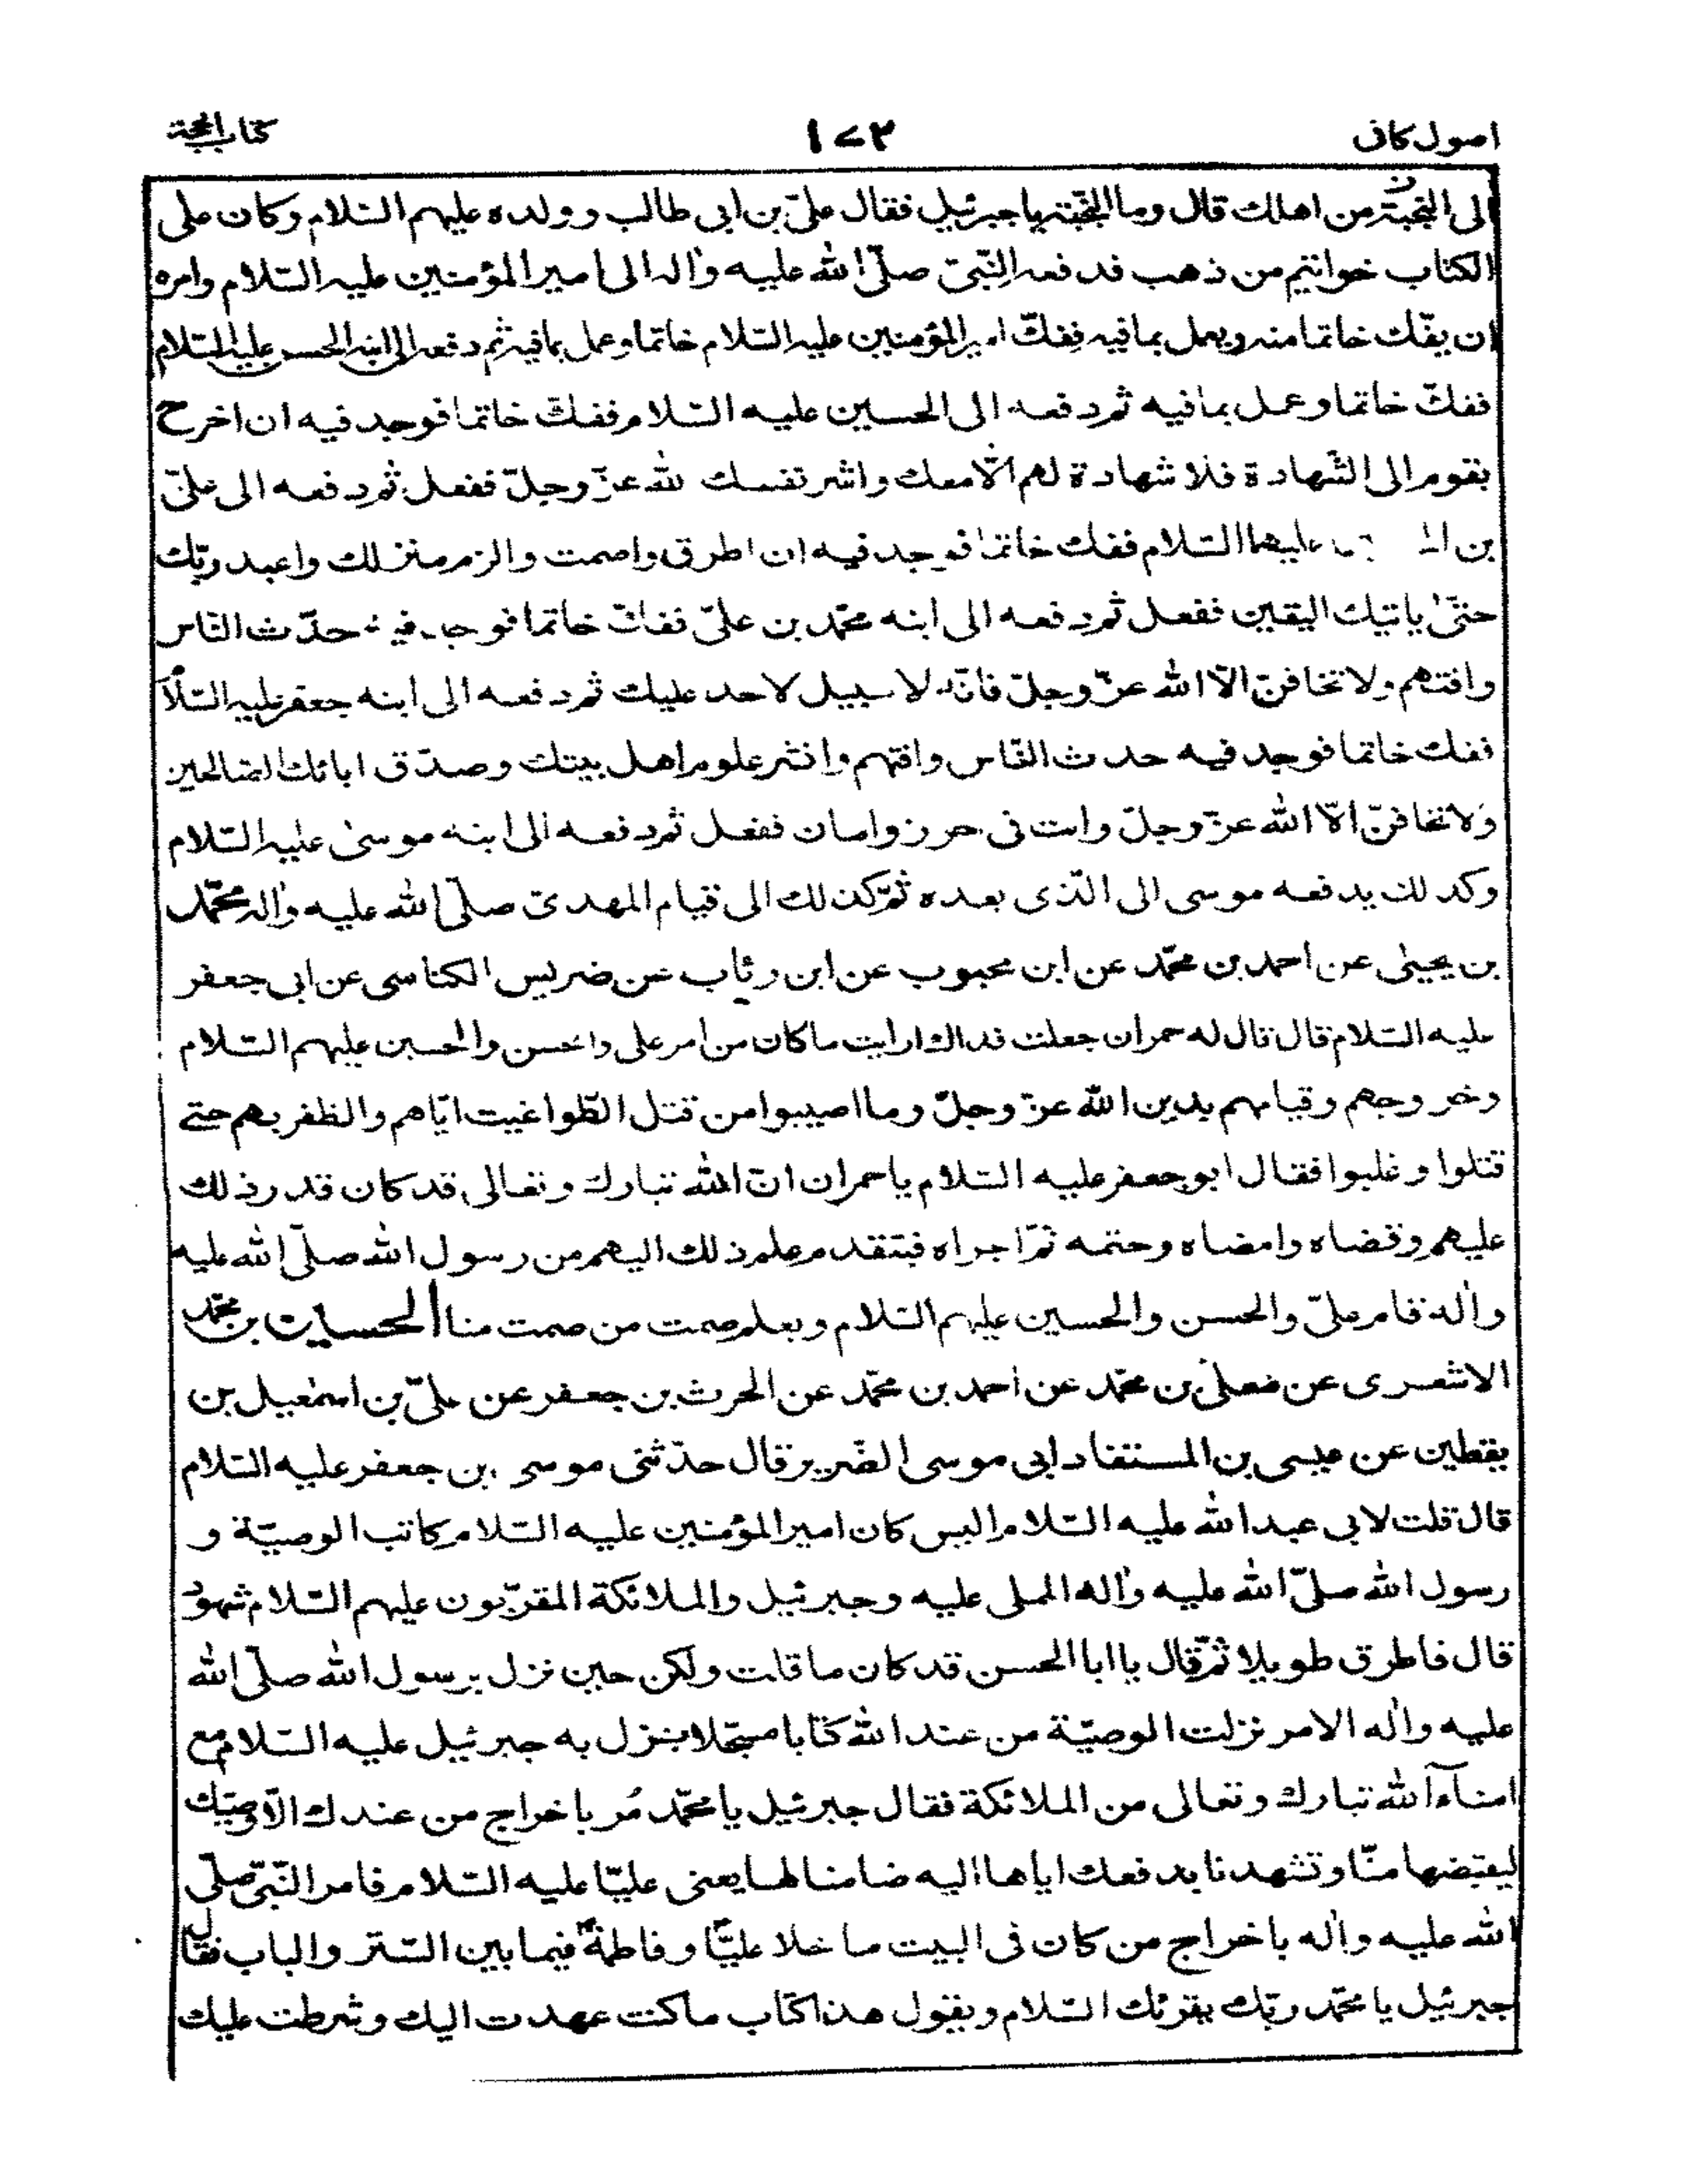 اصول كافى ١٧٣ كتاب الحجة
الى النجبة من اهلك قال وما النجبة يا جبرئيل فقال علىّ بن ابى طالب وولده عليهم السّلام وكان على
الكتاب خواتيم من ذهب فدفعه النّبىّ صلّى الله عليه واٰله الى امير المؤمنين عليه السّلام وامره
ان يفّك خاتما منه ويعمل بما فيه ففكّ امير المؤمنين عليه السّلام خاتما وعمل بما فيه ثم دفعه الى ابنه الحسن عليه السّلام
ففكّ خاتما وعمل بما فيه ثم دفعه الى الحسين عليه السّلام ففكّ خاتما فوجد فيه ان اخرج
بقوم الى الشّهادة فلا شهادة لهم الّا معك واشر نفسك لله عزّ وجلّ ففعل ثم دفعه الى علىّ
بن عليهما السّلام ففك خاتما فوجد فيه ان اطرق واصمت والزم منزلك واعبد ربّك
حتّىٰ ياتيك اليقين ففعل ثم دفعه الى ابنه محمّد بن علىّ ففكّ خاتما فوجد فيه حدّث النّاس
وافتهم ولا تخافنّ الّا الله عزّ وجلّ فانّه لا سبيل لاحد عليك ثم دفعه الى ابنه جعفر عليه السّلام
ففك خاتما فوجد فيه حدث النّاس وافتهم وانشر علوم اهل بيتك وصدّق ابائك الصّالحين
ولا تخافنّ الّا الله عزّ وجلّ وانت فى حرز وامان ففعل ثم دفعه الى ابنه موسىٰ عليه السّلام
وكذلك يدفعه موسى الى الّذى بعده ثمّ كذلك الى قيام المهدىّ صلّى الله عليه واٰله محمّد
بن يحيىٰ عن احمد بن محمّد عن ابن محبوب عن ابن رئاب عن ضريس الكناسى عن ابى جعفر
عليه السّلام قال قال له حمران جعلت فداك ارايت ما كان من امر على والحسن والحسين عليهم السّلام
وخروجهم وقيامهم بدين الله عزّ وجلّ وما اصيبوا من قتل الطّواغيت ايّاهم والظفر بهم حتى
قتلوا وغلبوا فقال ابو جعفر عليه السّلام يا حمران انّ الله تبارك وتعالى قد كان قدر ذلك
عليهم وقضاه وامضاه وحتمه ثمّ اجراه فبتقدم علم ذلك اليهم من رسول الله صلّى الله عليه
واٰله قام علىّ والحسن والحسين عليهم السّلام وبعلم صمت من صمت منا الحسين بن محمّد
الاشعرى عن معلىٰ بن محمّد عن احمد بن محمّد عن الحرث بن جعفر عن علىّ بن اسمٰعيل بن
يقطين عن عيسى بن المستفاد ابى موسى الضّرير قال حدّثنى موسى بن جعفر عليه السّلام
قال قلت لابى عبد الله عليه السّلام اليس كان امير المؤمنين عليه السّلام كاتب الوصيّة و
رسول الله صلّى الله عليه واٰله المملى عليه وجبرئيل والملائكة المقرّبون عليهم السّلام شهود
قال فاطرق طويلا ثمّ قال يا ابا الحسن قد كان ما قلت ولكن حين نزل برسول الله صلّى الله
عليه واٰله الامر نزلت الوصيّة من عند الله كتابا مسجّلا نزل به جبرئيل عليه السّلام مع
امناء الله تبارك وتعالى من الملائكة فقال جبرئيل يا محمّد مُر باخراج من عندك الّا وصيّك
ليقبضها منّا وتشهدنا بدفعك اياها اليه ضامنا لها يعنى عليّا عليه السّلام فامر النّبىّ صلّى
الله عليه واٰله باخراج من كان فى البيت ما خلا عليّا وفاطمة فيما بين السّتر والباب فقال
جبرئيل يا محمّد ربّك يقرئك السّلام ويقول هذا كتاب ما كنت عهدت اليك وشرطت عليك